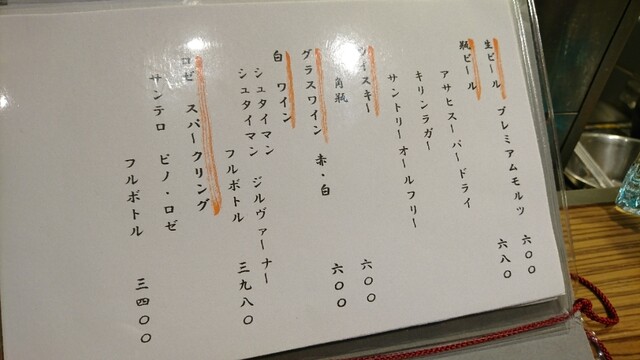 生ビール
プレミアムモルツ 六〇〇
瓶ビール 六八〇
アサヒスーパードライ
キリンラガー
サントリーオールフリー
ウィスキー 六〇〇
角瓶
グラスワイン 赤・白 六〇〇
白ワイン
シュタイマン ジルヴァーナー
シュタイマン フルボトル 三九八〇
ロゼ スパークリング
サンテロ ピノ・ロゼ
フルボトル 三四〇〇